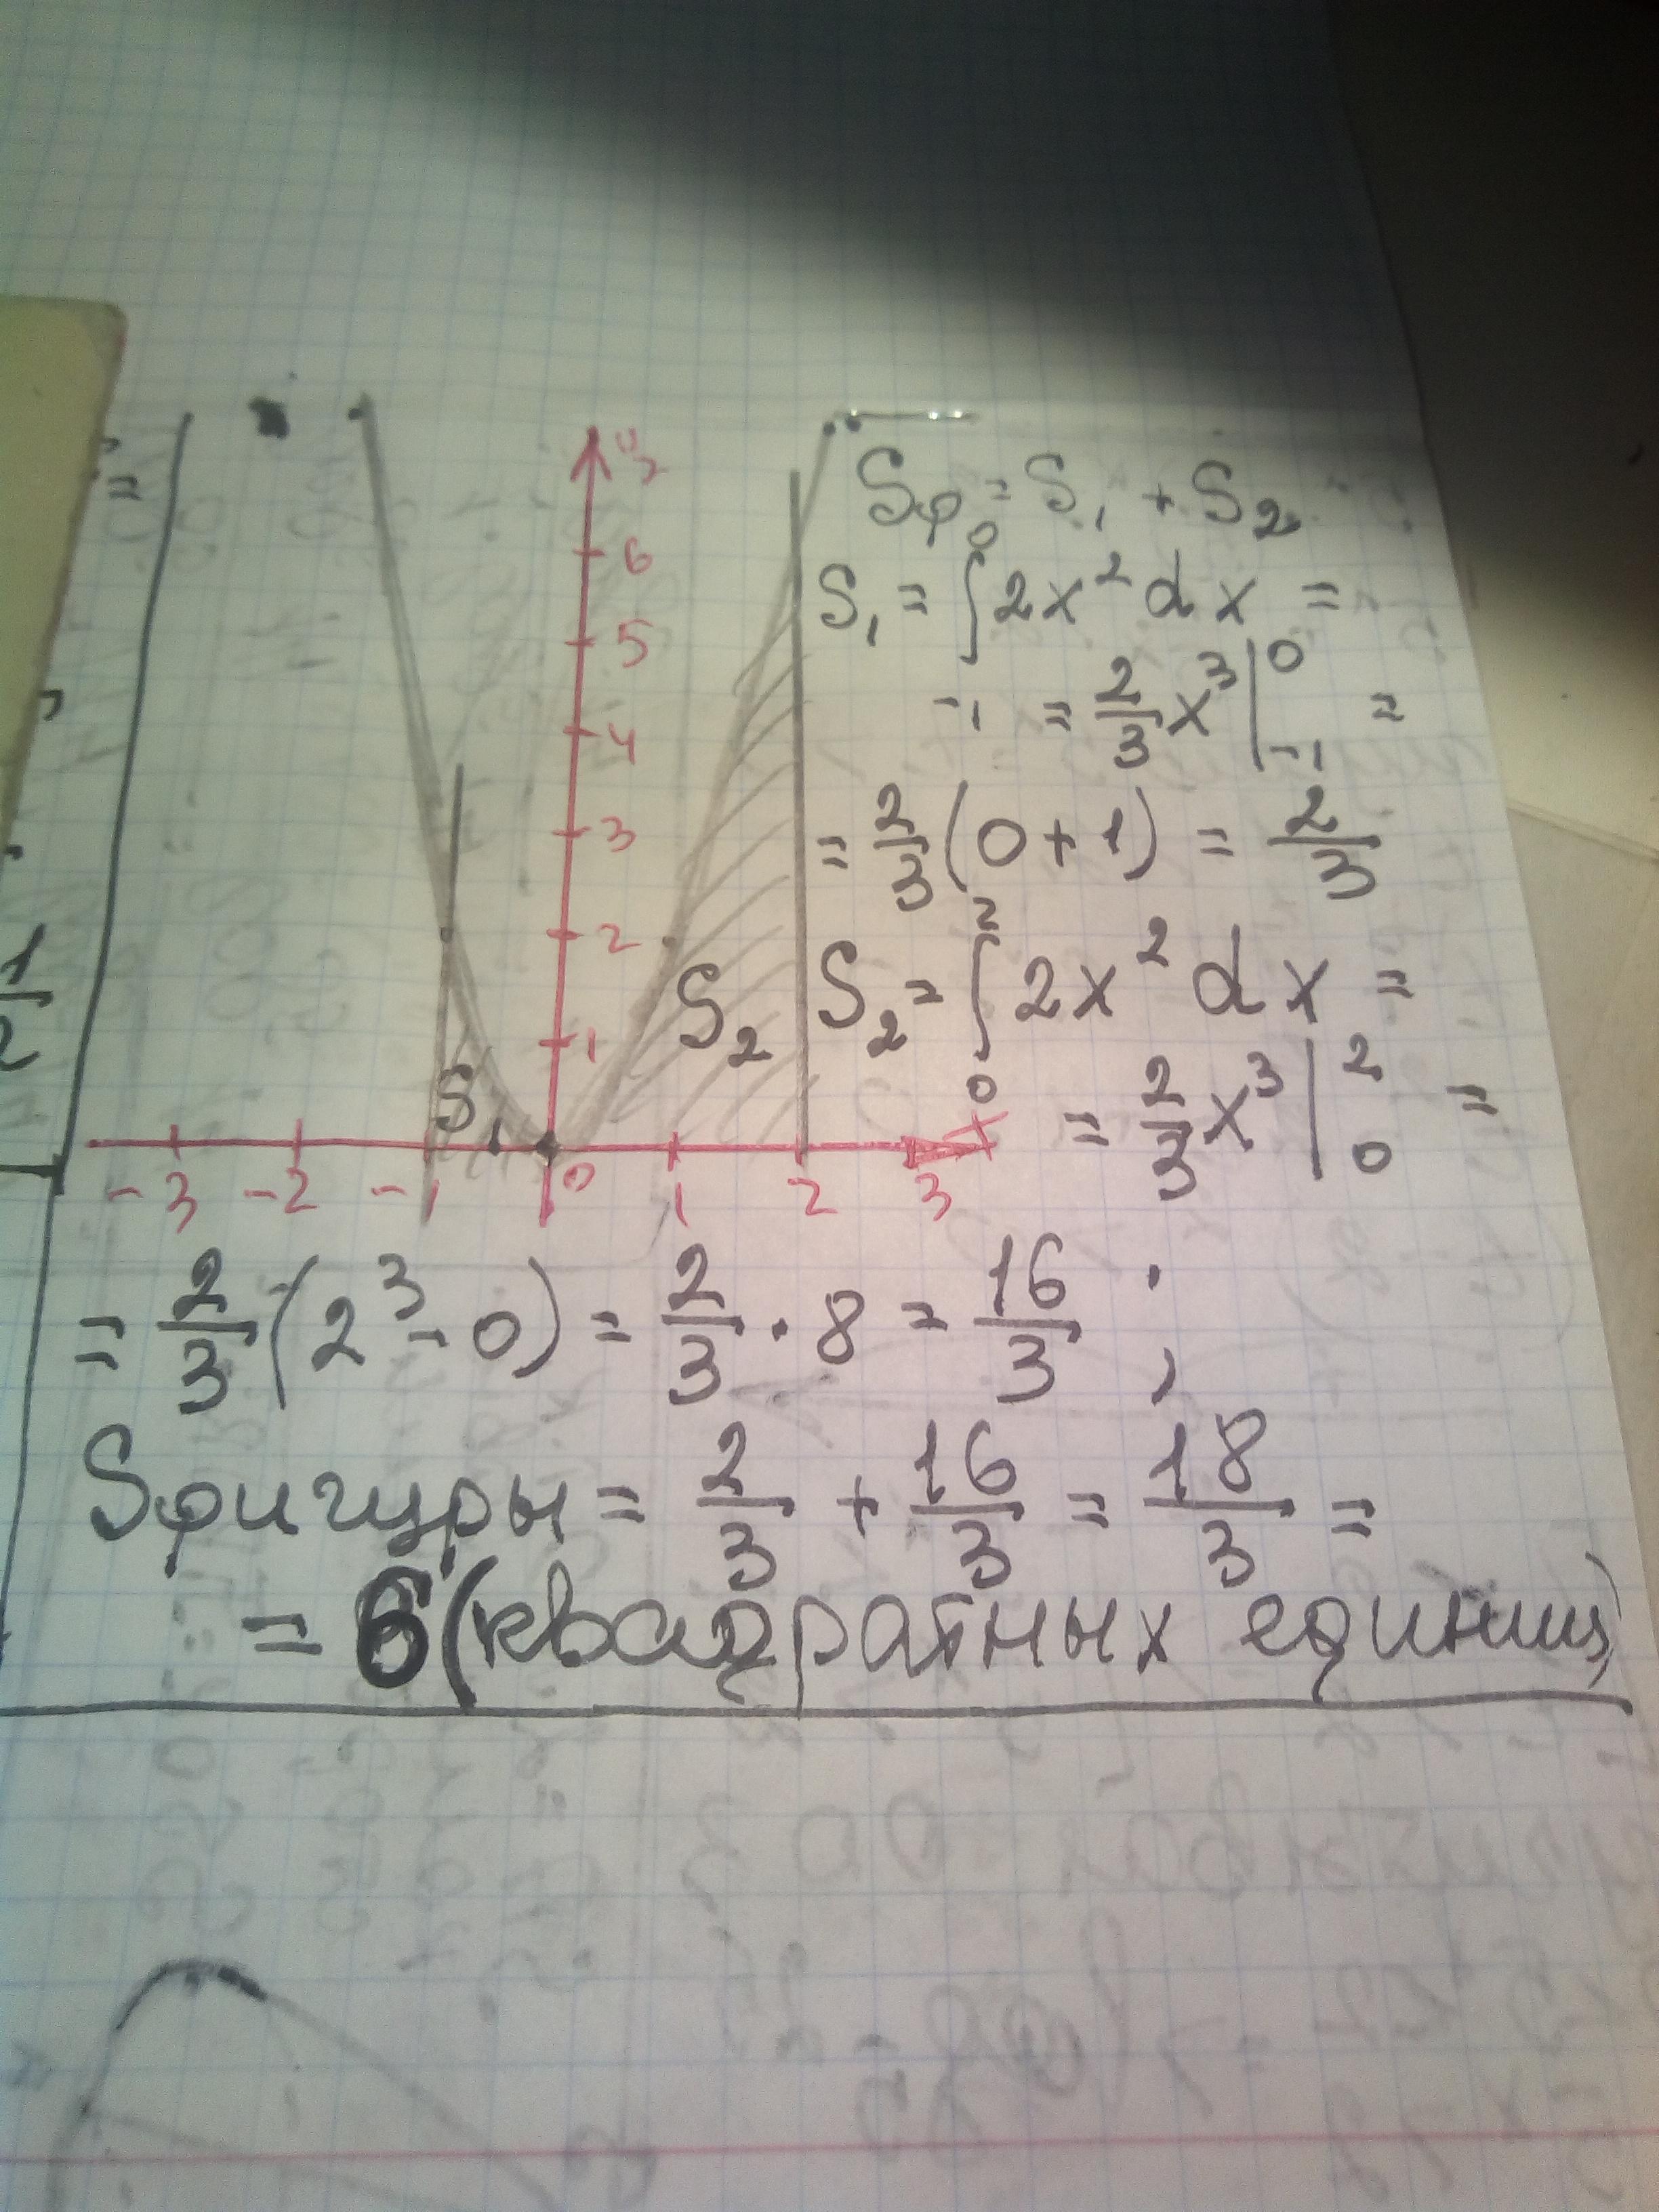 y
6
5
4
3
2
1
-3 -2 -1 0 1 2 3 x
S₁
S₂
Sφ = S₁ + S₂
S₁ = ∫₋₁⁰ 2x² dx =
= 2/3 x³ |₋₁⁰ =
= 2/3 (0 + 1) = 2/3
S₂ = ∫₀² 2x² dx =
= 2/3 x³ |₀² =
= 2/3 (2³ - 0) = 2/3 · 8 = 16/3 ;
Sфигуры = 2/3 + 16/3 = 18/3 =
= 6 (квадратных единиц)